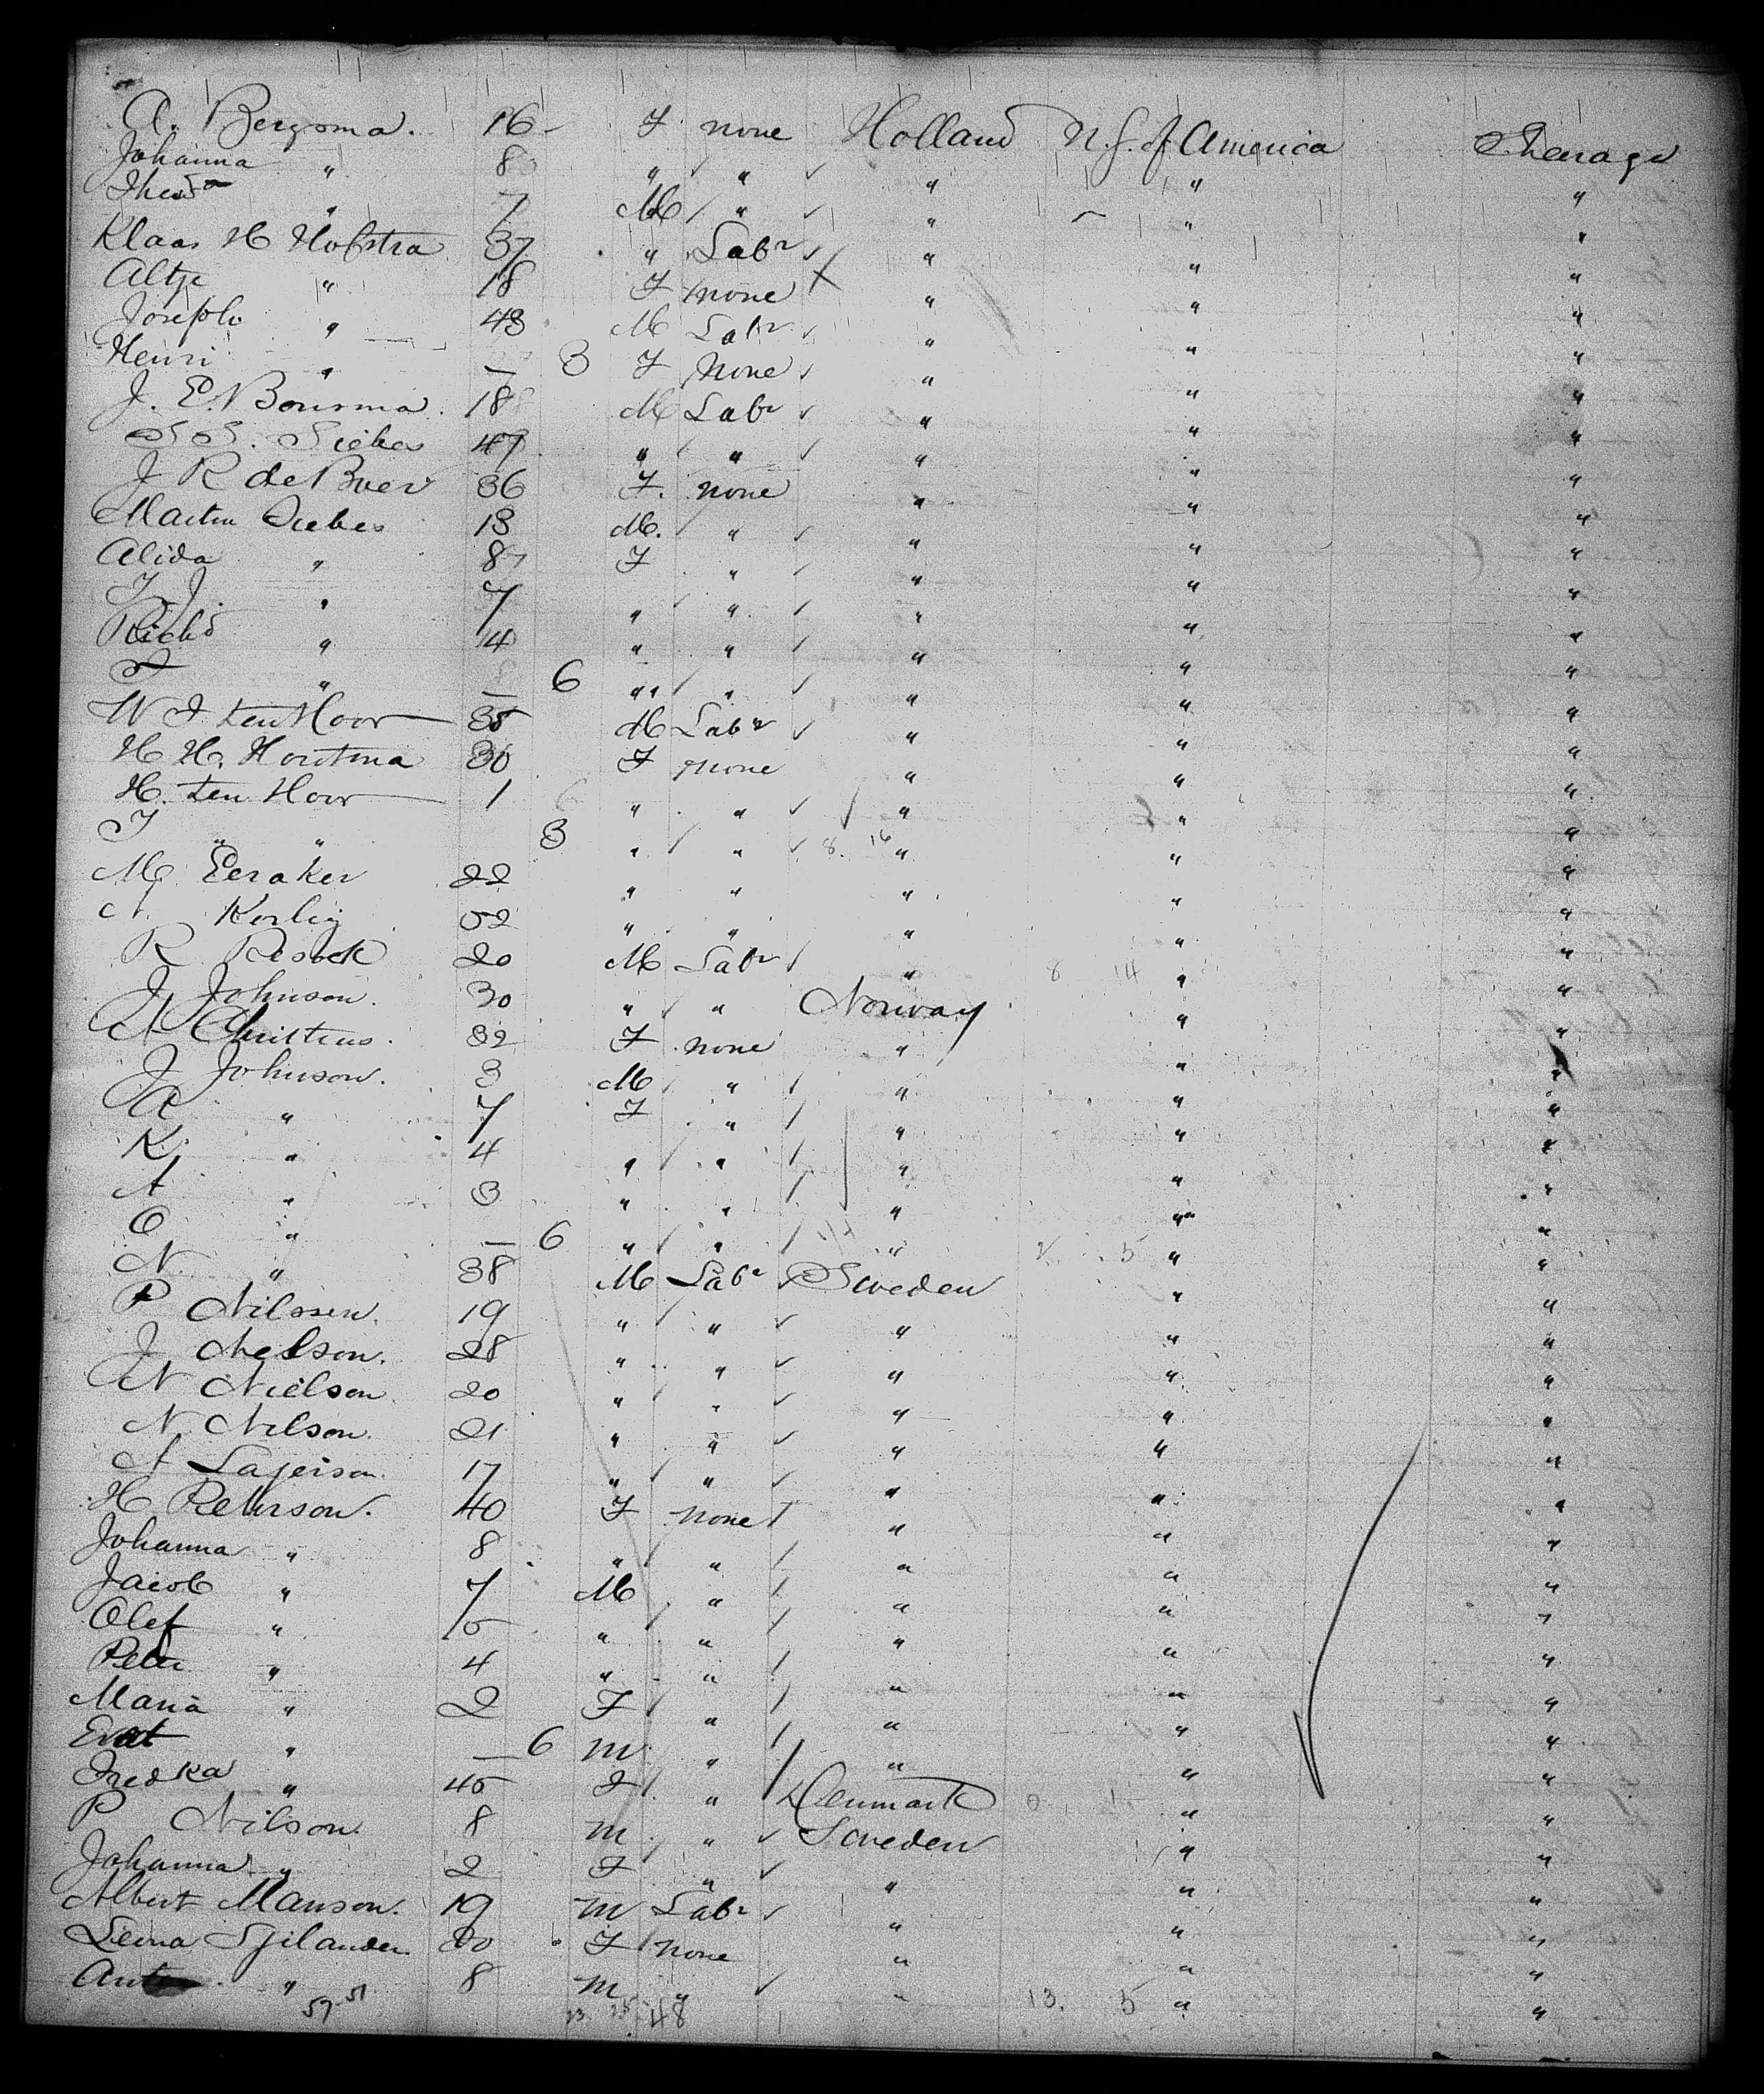 A. Bergsma. 16 F none Holland U.S. of America Steerage
Johanna " 8 " " " " "
" 7 M " " " "
Klaas H Hofstra 37 " Labr " " "
Altje " 18 F none " " "
Joseph " 43 M Labr " " "
Henri " — 3 F None " " "
J. E. Bousma. 18 M Labr " " "
47 " " " " "
J R de Boer 36 F. none " " "
Martin Siebes 13 M. " " " "
Alida " 8 F " " " "
T. J. " 7 " " " " "
Richd " 4 " " " " "
" — 6 " " " " "
W J ten Hoor 35 M Labr " " "
H. H. Houtma 30 F none " " "
H. ten Hoor 1 " " " " "
T " " 3 " " 8. 16 " " "
M. Eeraker 22 " " " " "
A. 52 " " " " "
R 20 M Labr " 8 14 " "
J Johnson. 30 " " Norway " "
A Christens. 32 F none " " "
J Johnson. 3 M " " " "
A " 7 F " " " "
K. " 4 " " " " "
A " 3 " " " " "
O " — 6 " " " 2 5 " "
N " 38 M Labr Sweden " "
P Nilssen. 19 " " " " "
J Nelson. 28 " " " " "
N Nielson 20 " " " " "
N. Nilson. 21 " " " " "
A Lagerson. 17 " " " " "
H Peterson. 40 F none " " "
Johanna " 8 " " " " "
Jacob " 7 M " " " "
Olef " 5 " " " " "
Peter " 4 " " " " "
Maria " 2 F " " " "
" — 6 m " " " "
Fredka " 45 F " Denmark " "
P Nilson. 8 m " Sweden " "
Johanna " 2 F " " " "
Albert Manson. 19 m Labr " " "
Leina F none " " "
" 8 m " " 13. 5 " "
57 51 23 25 48